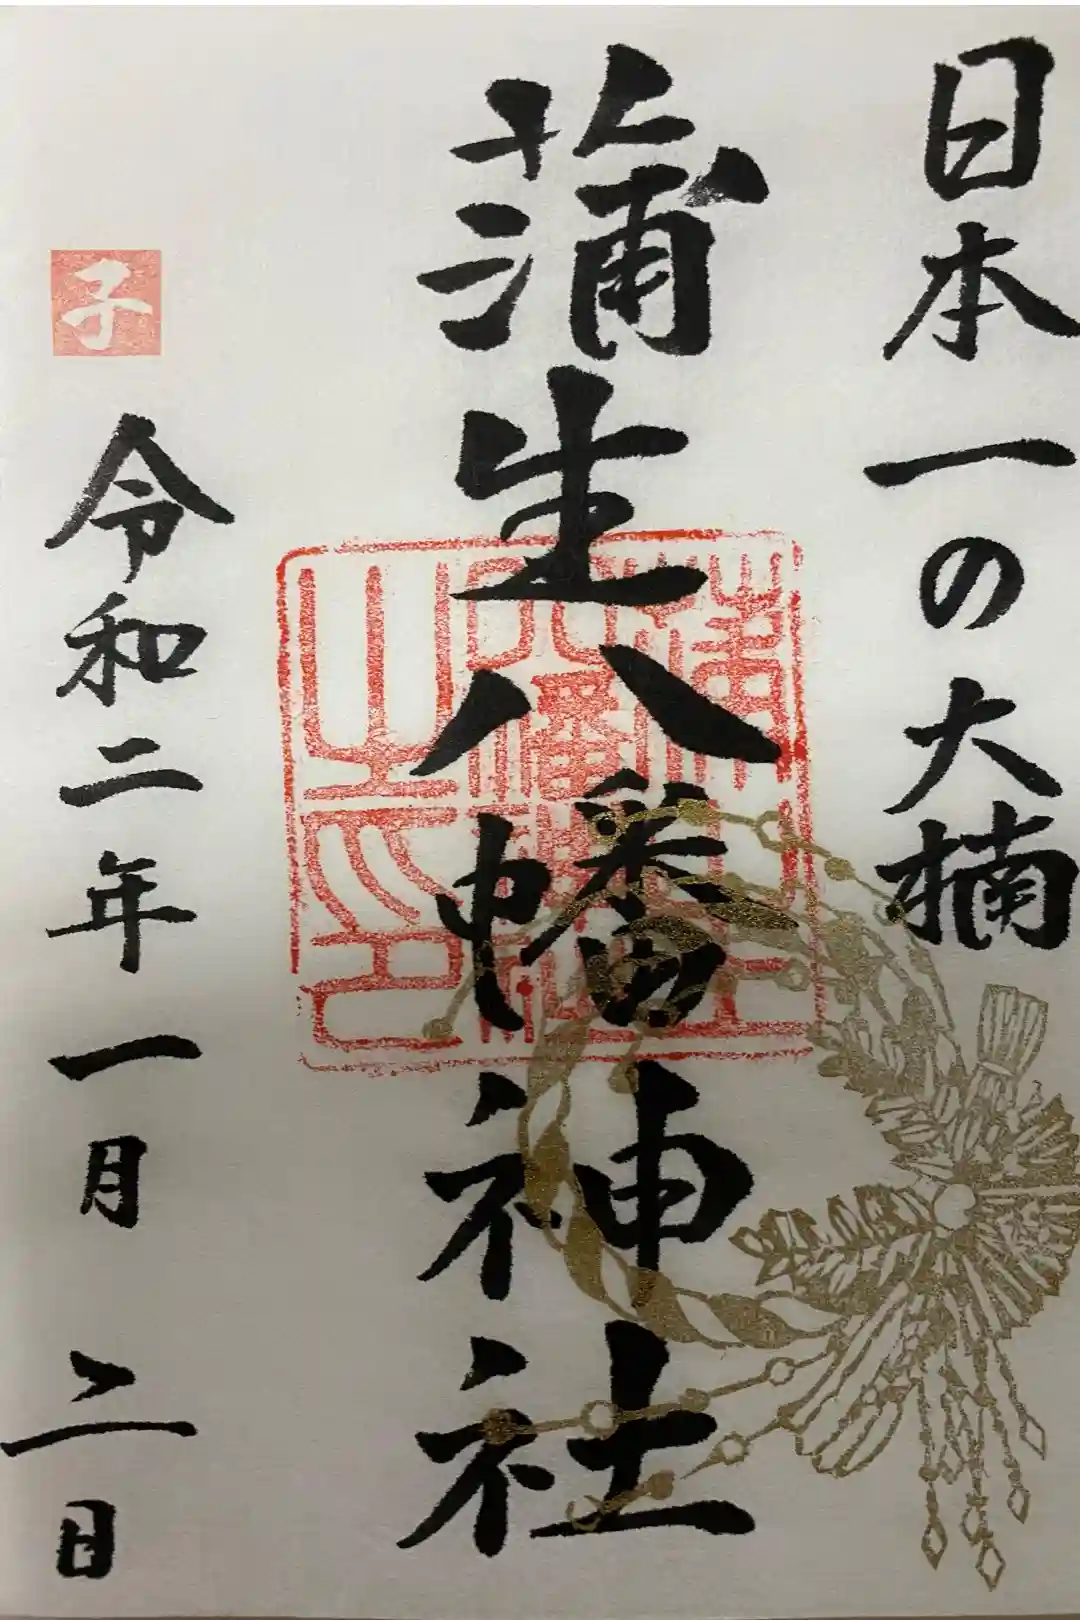 日本一の大楠
蒲生八幡神社
蒲生
八幡神社
之印
子
令和二年一月二日